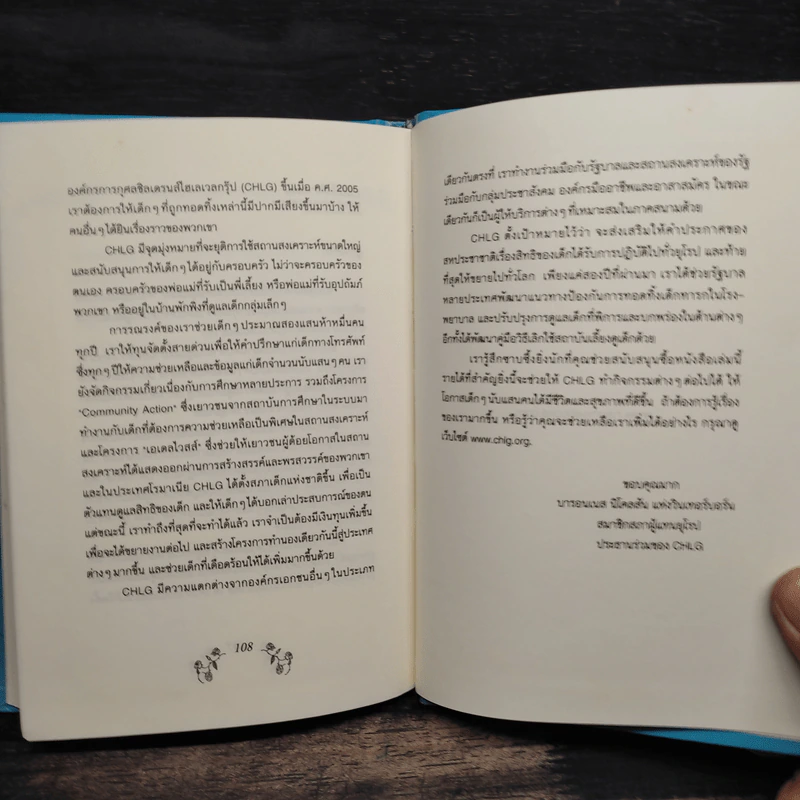 องค์กรการกุศลชิลเดรนส์ไฮเลเวลกรุ๊ป (CHLG) ขึ้นเมื่อ ค.ศ. 2005
เราต้องการให้เด็กๆ ที่ถูกทอดทิ้งเหล่านี้มีปากมีเสียงขึ้นมาบ้าง ให้
คนอื่นๆ ได้ยินเรื่องราวของพวกเขา
CHLG มีจุดมุ่งหมายที่จะยุติการใช้สถานสงเคราะห์ขนาดใหญ่
และสนับสนุนการให้เด็กๆ ได้อยู่กับครอบครัว ไม่ว่าจะครอบครัวของ
ตนเอง ครอบครัวของพ่อแม่ที่รับเป็นพี่เลี้ยง หรือพ่อแม่ที่รับอุปถัมภ์
พวกเขา หรืออยู่ในบ้านพักพิงที่ดูแลเด็กกลุ่มเล็กๆ
การรณรงค์ของเราช่วยเด็กๆ ประมาณสองแสนห้าหมื่นคน
ทุกปี เราให้ทุนจัดตั้งสายด่วนเพื่อให้คำปรึกษาแก่เด็กทางโทรศัพท์
ซึ่งทุกๆ ปีให้ความช่วยเหลือและข้อมูลแก่เด็กจำนวนนับแสนๆ คน เรา
ยังจัดกิจกรรมเกี่ยวเนื่องกับการศึกษาหลายประการ รวมถึงโครงการ
"Community Action" ซึ่งเยาวชนจากสถาบันการศึกษาในระบบมา
ทำงานกับเด็กที่ต้องการความช่วยเหลือเป็นพิเศษในสถานสงเคราะห์
และโครงการ "เอเดลไวสส์" ซึ่งช่วยให้เยาวชนผู้ด้อยโอกาสในสถาน
สงเคราะห์ได้แสดงออกผ่านการสร้างสรรค์และพรสวรรค์ของพวกเขา
และในประเทศโรมาเนีย CHLG ได้ตั้งสภาเด็กแห่งชาติขึ้น เพื่อเป็น
ตัวแทนดูแลสิทธิของเด็ก และให้เด็กๆ ได้บอกเล่าประสบการณ์ของตน
แต่ขณะนี้ เราทำถึงที่สุดที่จะทำได้แล้ว เราจำเป็นต้องมีเงินทุนเพิ่มขึ้น
เพื่อจะได้ขยายงานต่อไป และสร้างโครงการทำนองเดียวกันนี้สู่ประเทศ
ต่างๆ มากขึ้น และช่วยเด็กที่เดือดร้อนให้ได้เพิ่มมากขึ้นด้วย
CHLG มีความแตกต่างจากองค์กรเอกชนอื่นๆ ในประเภท
108
เดียวกันตรงที่ เราทำงานร่วมมือกับรัฐบาลและสถานสงเคราะห์ของรัฐ
ร่วมมือกับกลุ่มประชาสังคม องค์กรมืออาชีพและอาสาสมัคร ในขณะ
เดียวกันก็เป็นผู้ให้บริการต่างๆ ที่เหมาะสมในภาคสนามด้วย
CHLG ตั้งเป้าหมายไว้ว่า จะส่งเสริมให้คำประกาศของ
สหประชาชาติเรื่องสิทธิของเด็กได้รับการปฏิบัติไปทั่วยุโรป และท้าย
ที่สุดให้ขยายไปทั่วโลก เพียงแค่สองปีที่ผ่านมา เราได้ช่วยรัฐบาล
หลายประเทศพัฒนาแนวทางป้องกันการทอดทิ้งเด็กทารกในโรง-
พยาบาล และปรับปรุงการดูแลเด็กที่พิการและบกพร่องในด้านต่างๆ
อีกทั้งได้พัฒนาคู่มือวิธีเลิกใช้สถาบันเลี้ยงดูเด็กด้วย
เรารู้สึกซาบซึ้งยิ่งนักที่คุณช่วยสนับสนุนซื้อหนังสือเล่มนี้
รายได้ที่สำคัญยิ่งนี้จะช่วยให้ CHLG ทำกิจกรรมต่างๆ ต่อไปได้ ให้
โอกาสเด็กๆ นับแสนคนได้มีชีวิตและสุขภาพที่ดีขึ้น ถ้าต้องการรู้เรื่อง
ของเรามากขึ้น หรือรู้ว่าคุณจะช่วยเหลือเราเพิ่มได้อย่างไร กรุณาดู
เว็บไซต์ www.chlg.org.
ขอบคุณมาก
บารอนเนส นิโคลสัน แห่งวินเทอร์บอร์น
สมาชิกสภาผู้แทนยุโรป
ประธานร่วมของ CHLG